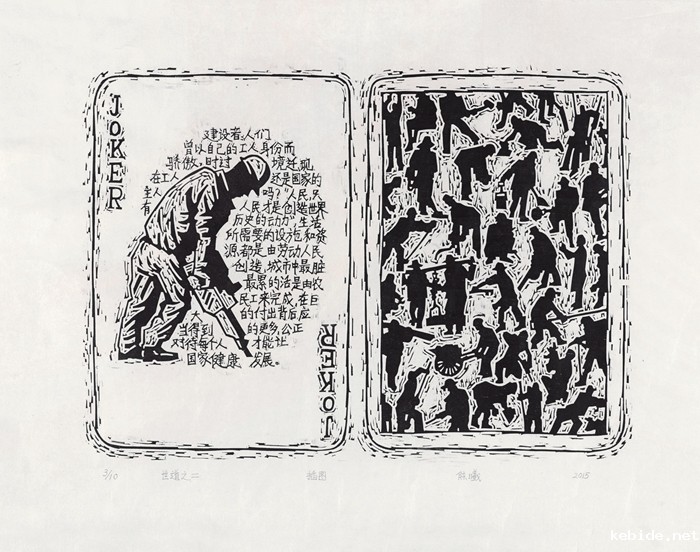 JOKER
建设者:人们
曾以自己的工人身份而
骄傲,时过 境迁,现
在工人 还是国家的
主人 吗?“人民,只
有 人民,才是创造世界
历史的动力”,生活
所需要的设施和资
源,都是由劳动人民
创造,城市中最脏
最累的活是由农
民工来完成,在巨
的付出背后,应
当得到 的更多,公正
对待每个人 才能让
国家健康 发展。
JOKER
2/10
2015
kebide.net